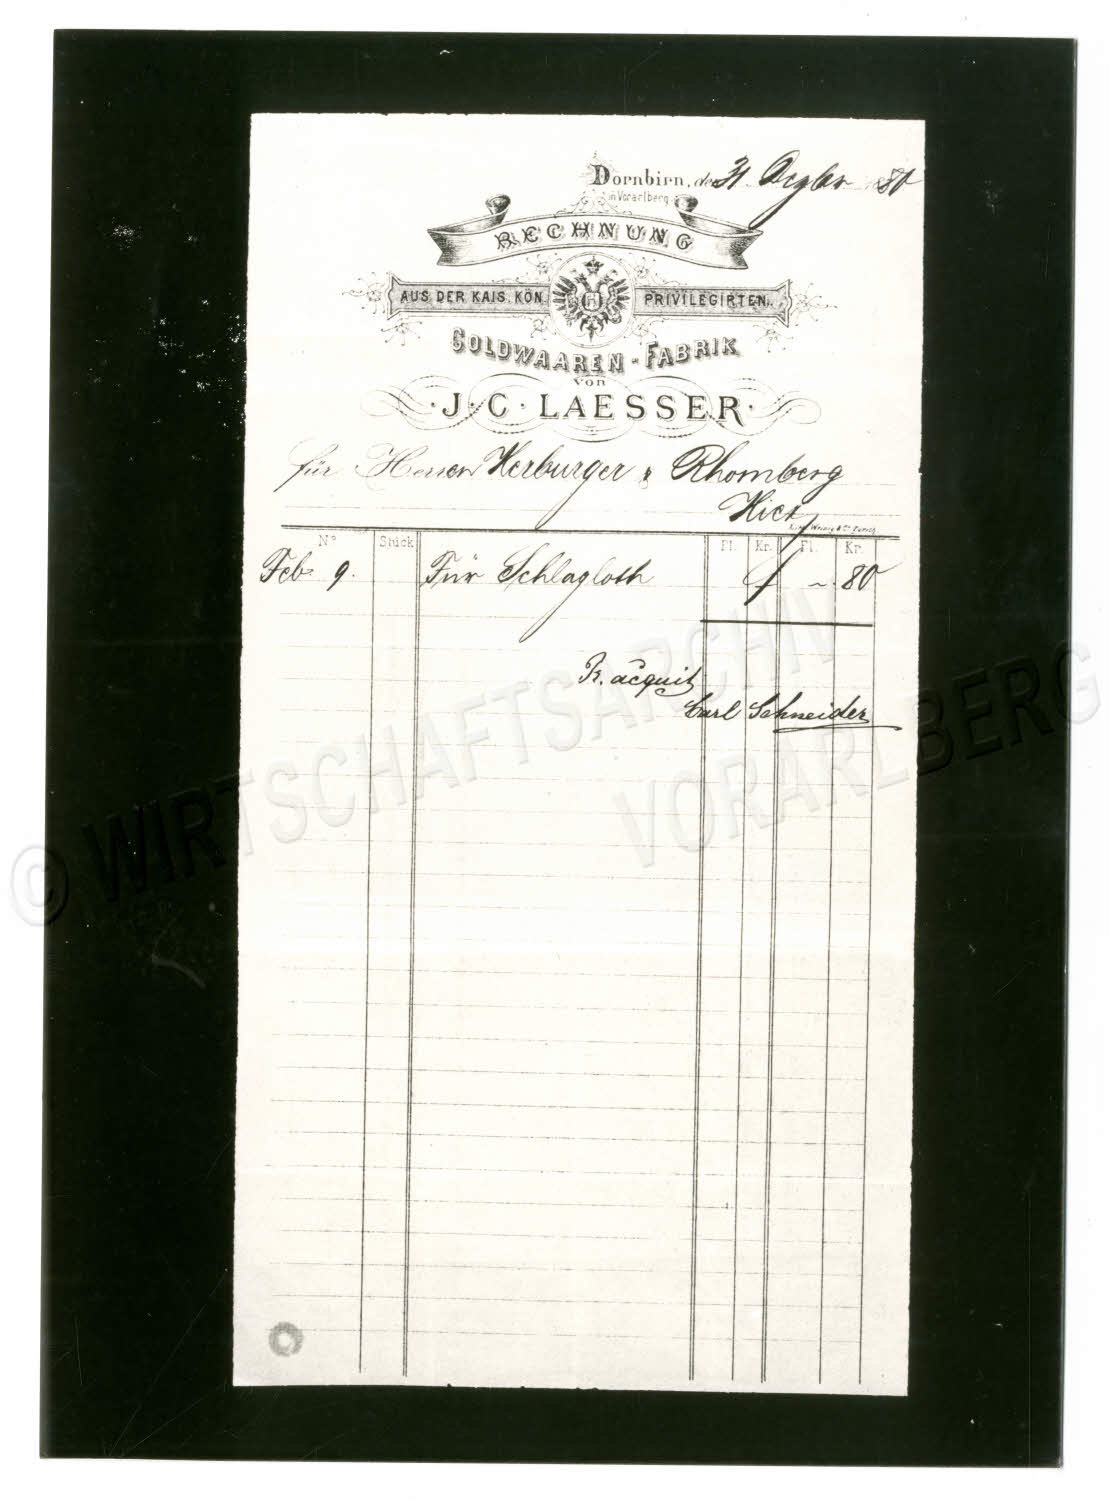 Dornbirn, den 31. Dezber 1880
in Vorarlberg
RECHNUNG
AUS DER KAIS. KÖN. PRIVILEGIRTEN
GOLDWAAREN-FABRIK
von
J. C. LAESSER
für Herren Herburger & Rhomberg
Hier
No Stück Fl. Kr. Fl. Kr.
Feb. 9. Für Schlagloth f ~. 80
Pr. acquit
Carl Schneider
© WIRTSCHAFTSARCHIV
VORARLBERG